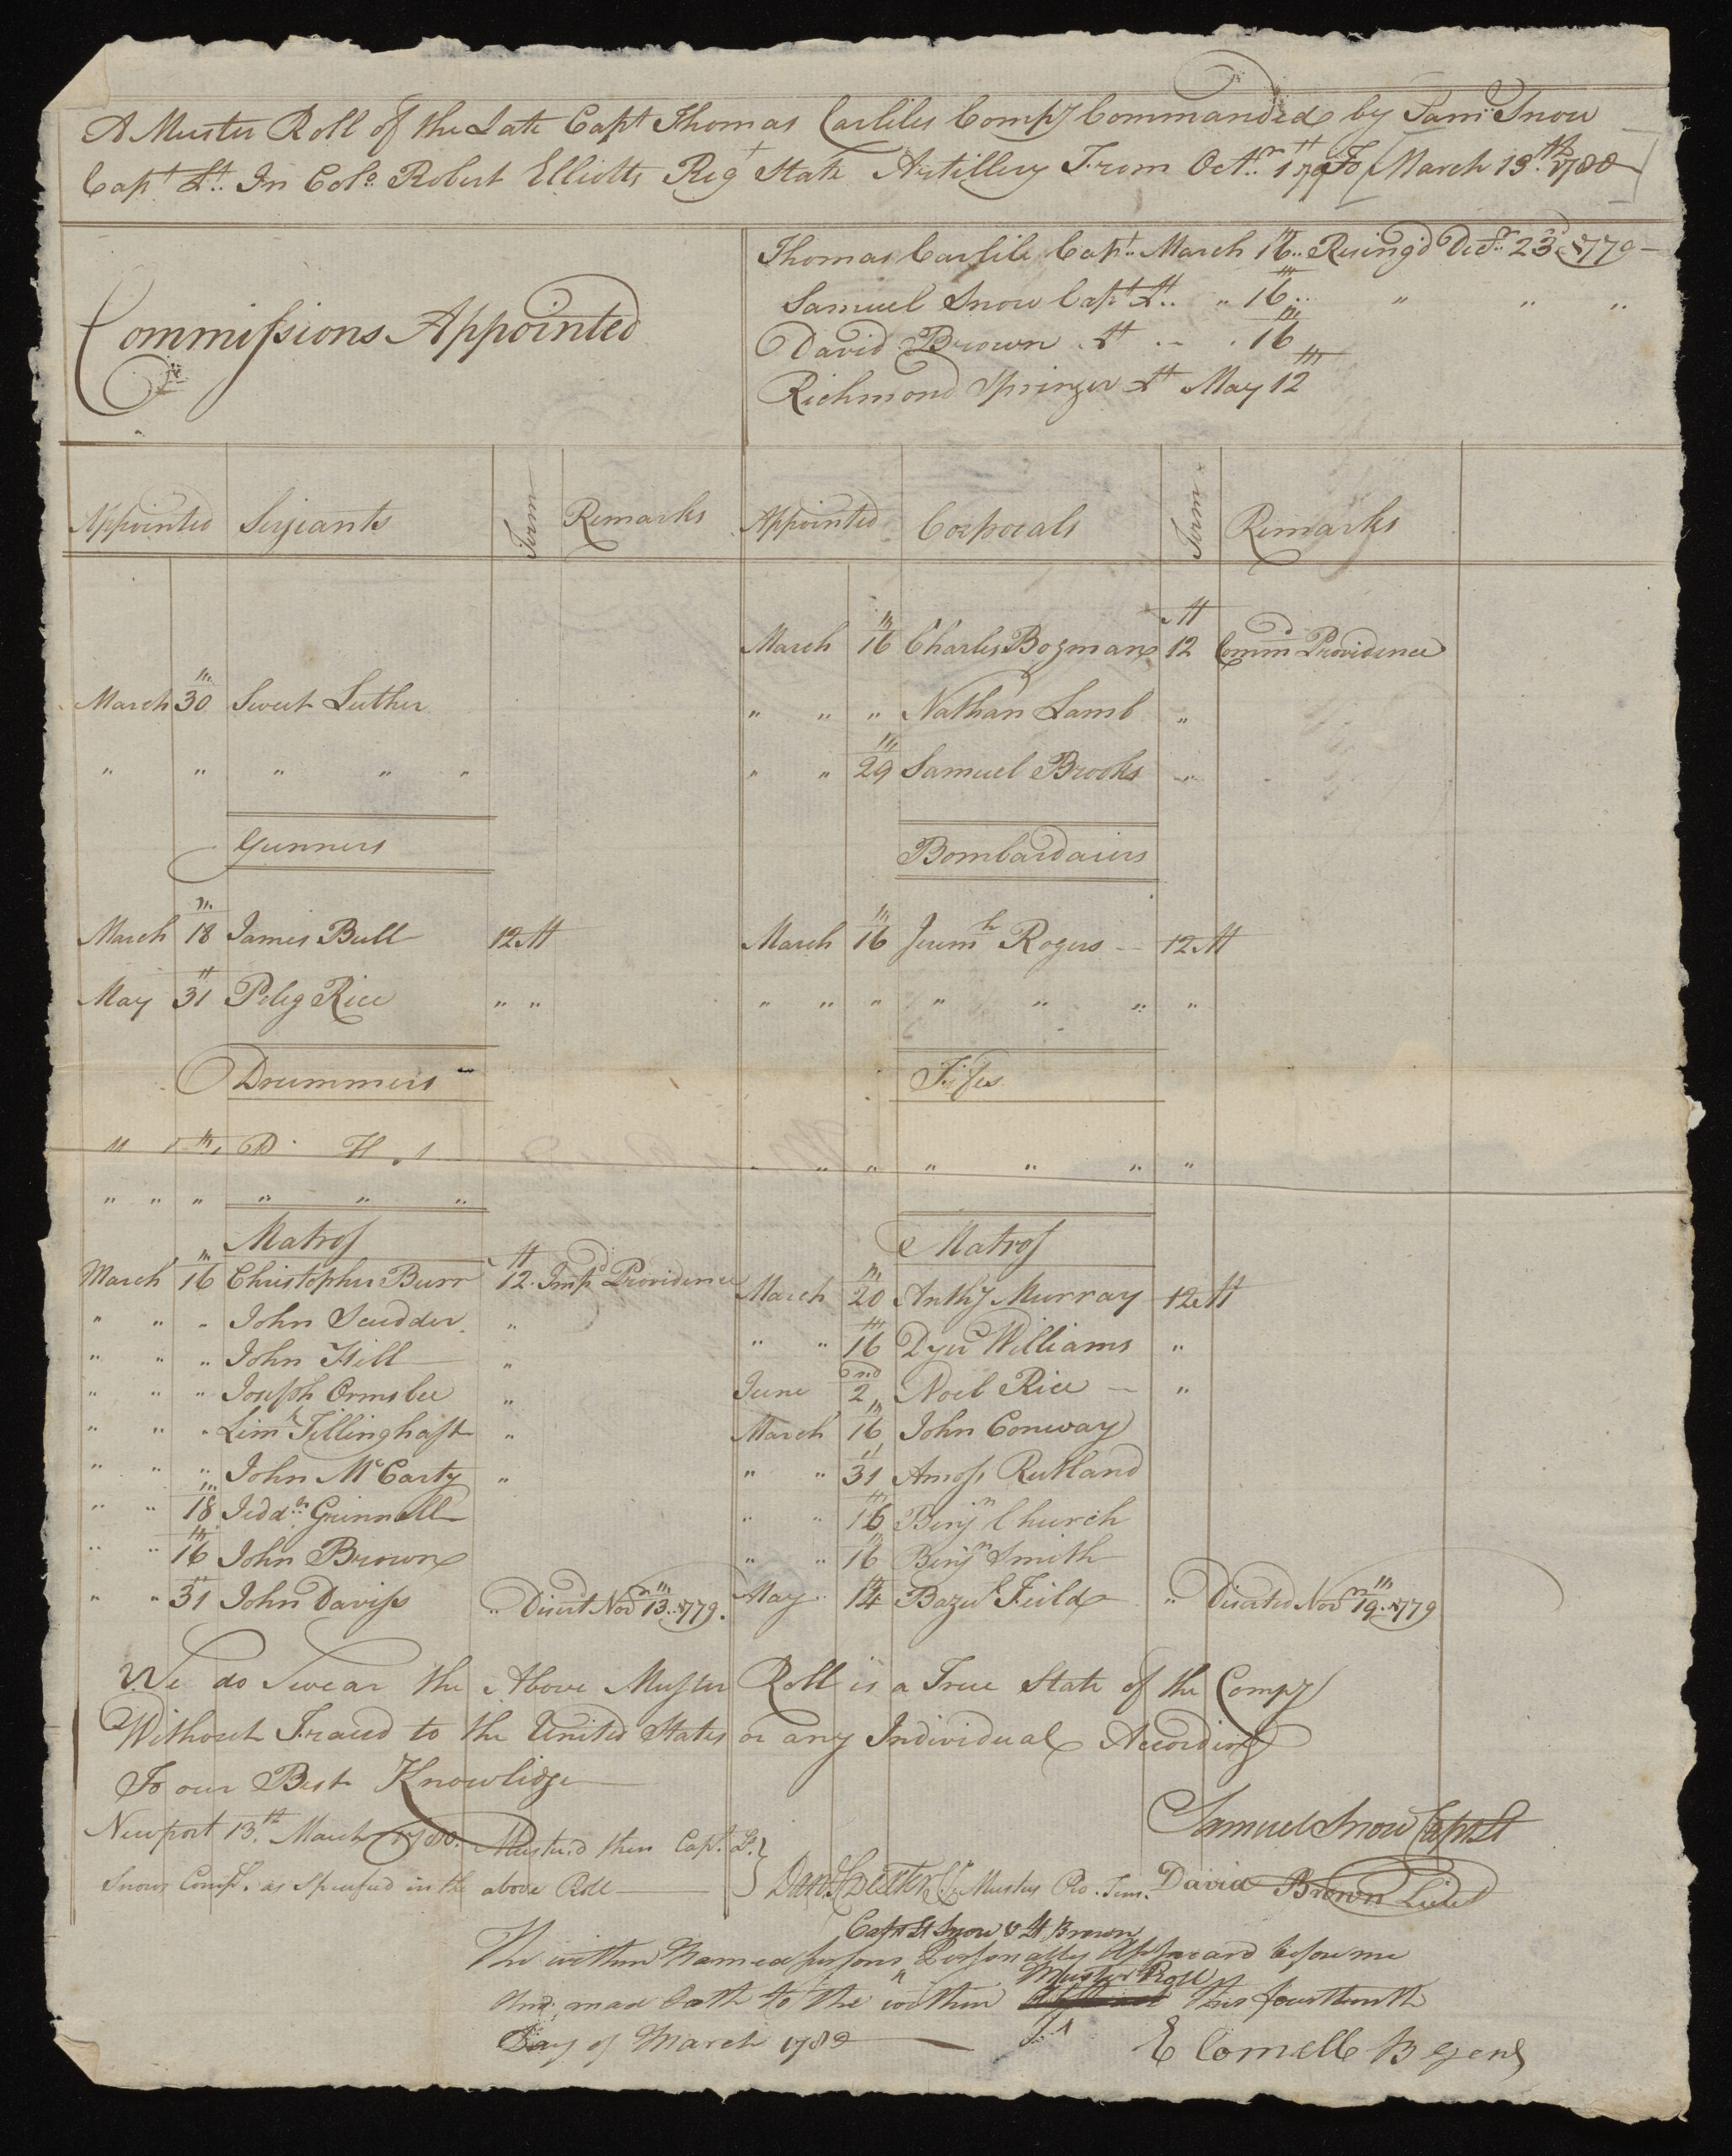 A Muster Roll of the Late Capt Thomas Carliles Compy Commanded by Samˡ Snow
Capt Lt. In Colo. Robert Elliotts Regt State Artillery From Octr. 1st 1779 To March 13th 1780
Commissions Appointed
Thomas Carlile Capt. March 16th Resing'd Decr. 23d 1779
Samuel Snow Capt Lt. " 16th " " "
David Brown Lt " 16th
Richmond Springer Lt May 12th
Appointed Serjeants Term Remarks Appointed Corporals Term Remarks
March 16th Charles Bozman 12 Mt Commd Providence
March 30th Sweet Luther " " " Nathan Lamb "
" " " " " " " 29th Samuel Brooks "
Gunners Bombardaiers
March 18th James Bull 12 Mt March 16th Jeremh Rogers 12 Mt
May 31st Peleg Rice " " " " " " " " "
Drummers Fifes
" " " " " " "
" " " " " "
Matross Matross
March 16th Christopher Burr 12 Mt Impd Providence March 20th Anthy Murray 12 Mt
" " " John Scudder " " " 16th Dyer Williams "
" " " John Hill " June 2nd Noel Rice "
" " " Joseph Ormsbee " March 16th John Conway
" " " Limn Tillinghast " " " 31st Amoss Rutland
" " " John McCarty " " " 16th Benjn Church
" " 18th Jedah Grinnell " " 16th Benjn Smith
" " 16th John Brown May 14th Bazel Feild " Diserted Novr 19th 1779
" " 31st John Daviss " Disert Novr 13th 1779.
We do Swear the Above Muster Roll is a True State of the Compy
Without Fraud to the United States or any Individual According
To our Best Knowlidge
Samuel Snow Capt Lt
Newport 13th. March 1780. Muster'd then Capt. Lt.
Snows Compy. as Specified in the above Roll Mustr Pro. Tem. David Brown Lieut
Capt Lt Snow & Lt Brown
The within Named persons Personally Appeard before me
And mad Oath to the within Muster Roll this fourteenth
Day of March 1780
E Cornell B Genl